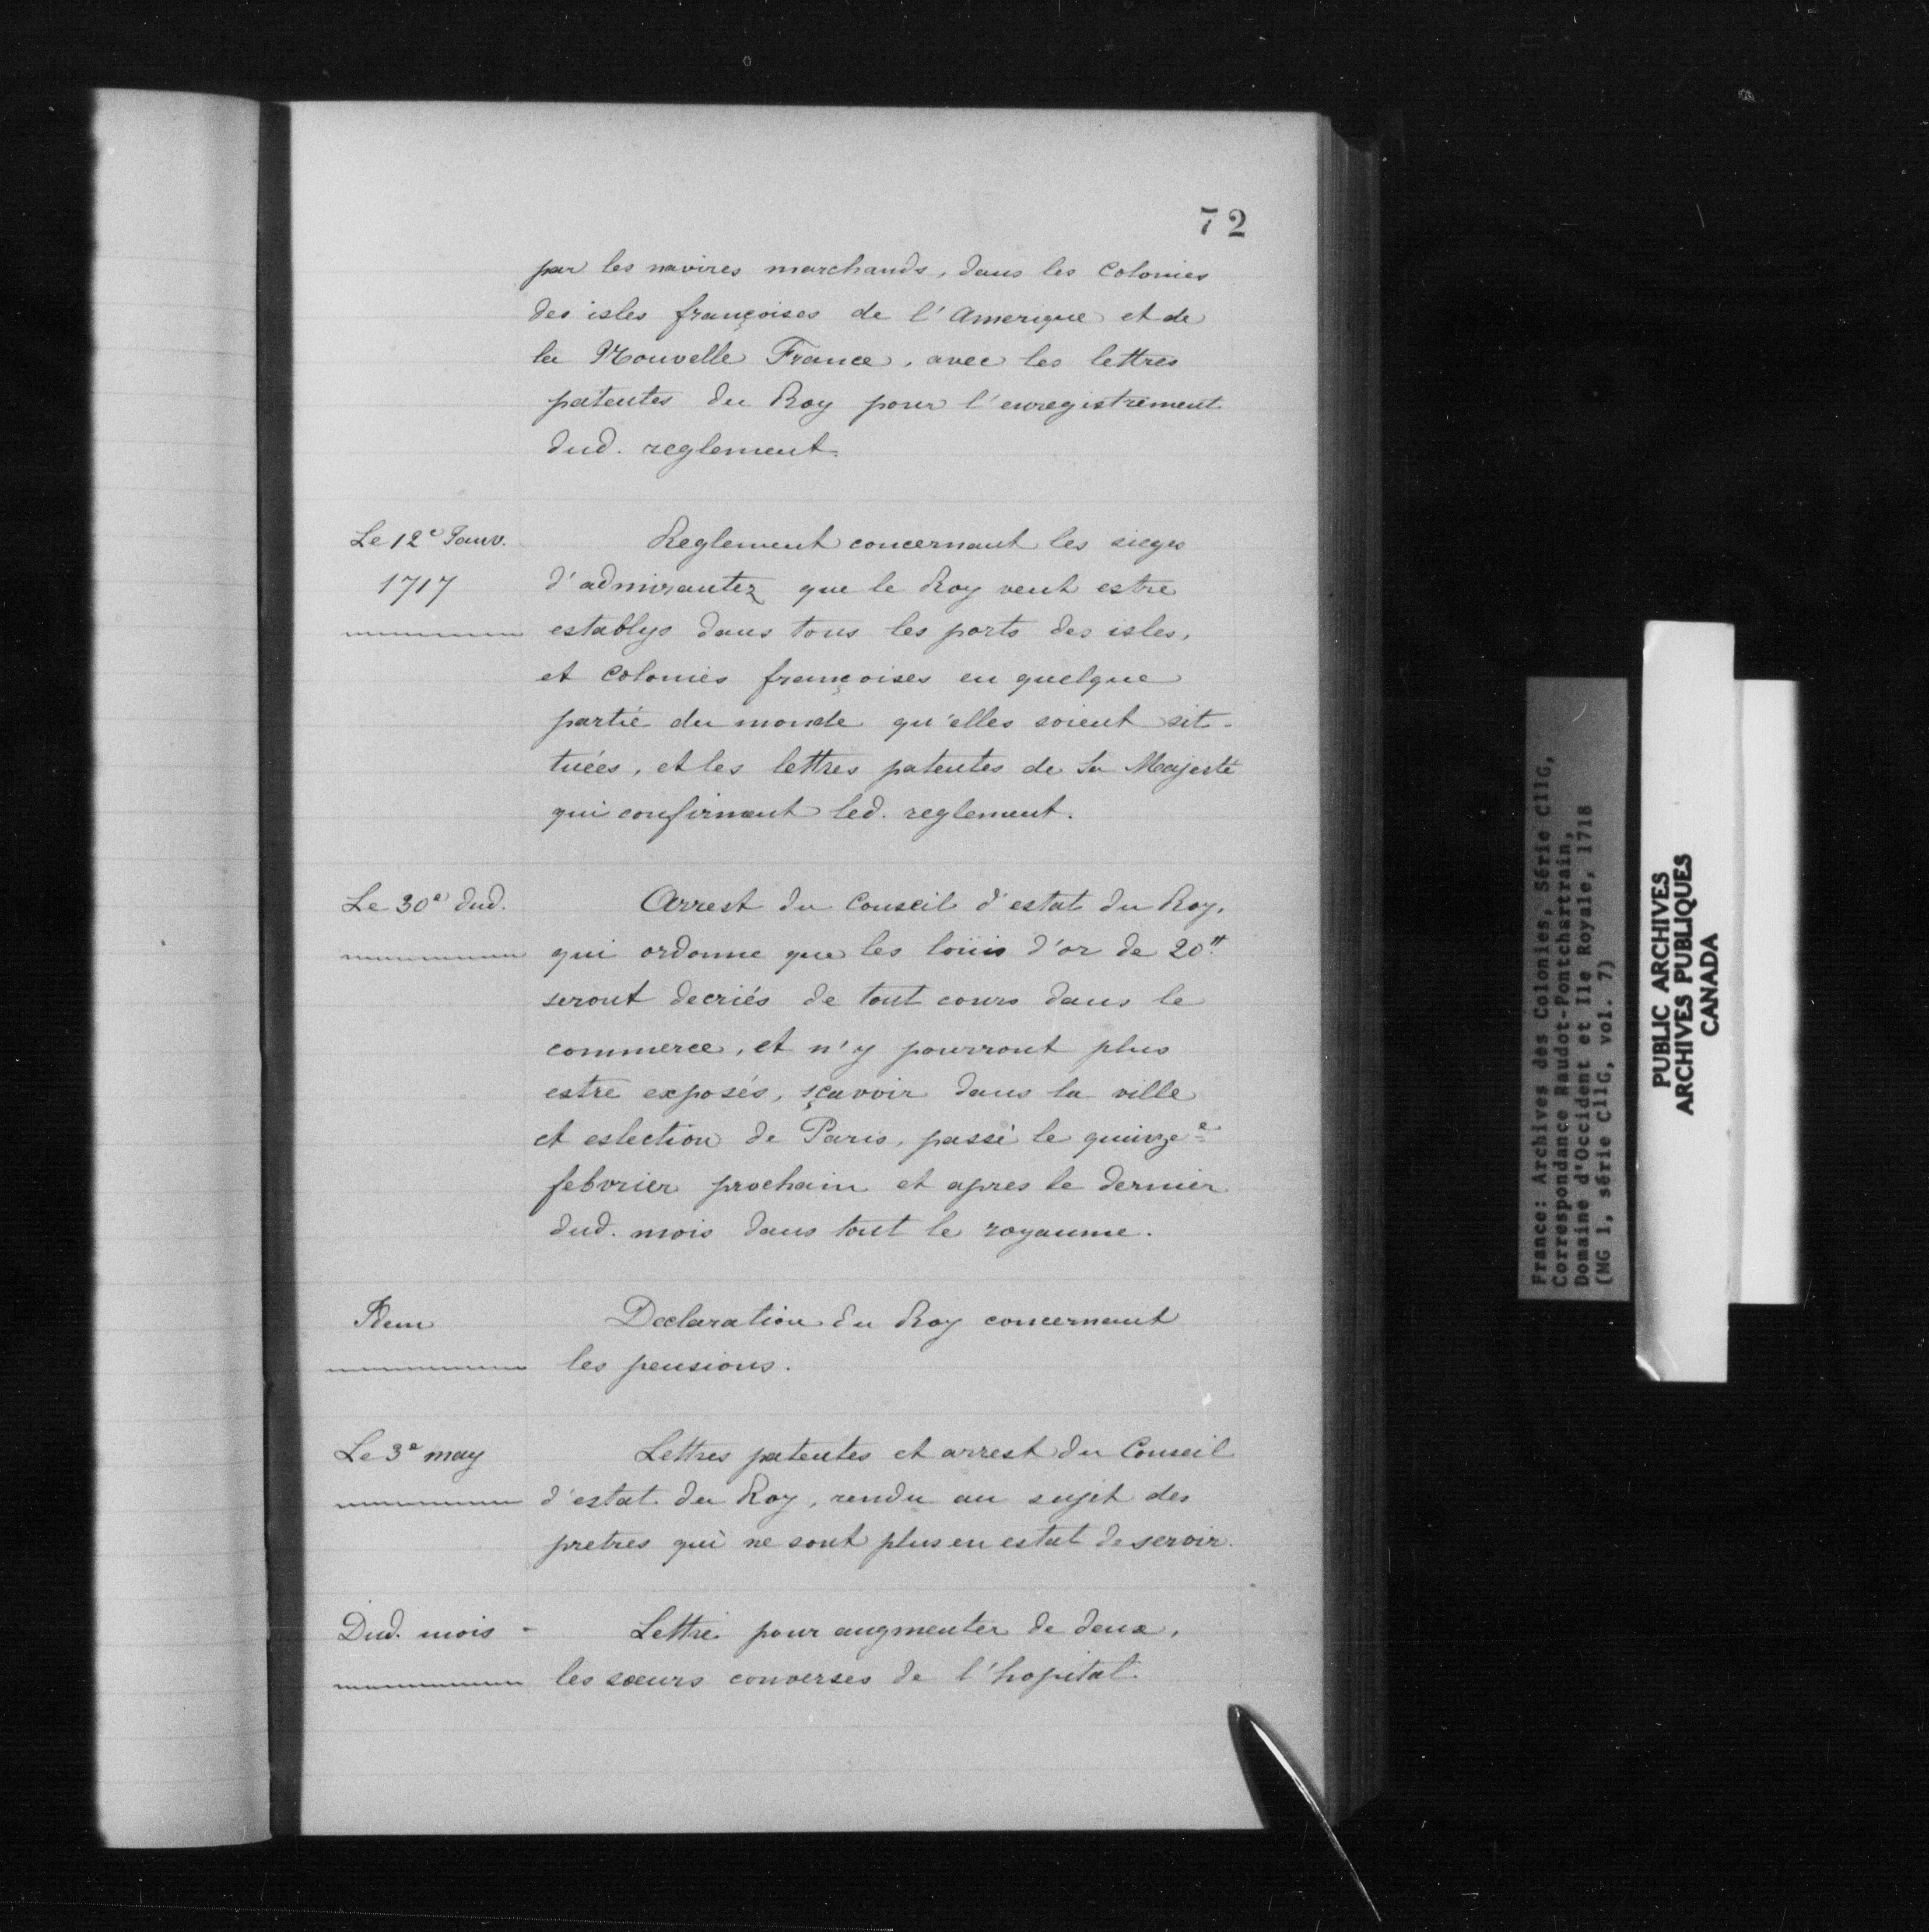 72
par les navires marchands, dans les colonies
des isles françoises de l'Amerique et de
la Nouvelle France, avec les lettres
patentes du Roy pour l'enregistrement
dud. reglement.
Le 12e Janv.
1717
Reglement concernant les sieges
d'admirautez que le Roy veut estre
establys dans tous les ports des isles,
et colonies françoises en quelque
partie du monde qu'elles soient sit-
tuées, et les lettres patentes de Sa Majesté
qui confirment led. reglement.
Le 30e dud.
Arrest du Conseil d'estat du Roy,
qui ordonne que les loüis d'or de 20tt
seront decriés de tout cours dans le
commerce, et n'y pourront plus
estre exposés, sçavoir dans la ville
et eslection de Paris, passé le quinze e
febvrier prochain et apres le dernier
dud. mois dans tout le royaume.
Item
Declaration du Roy concernant
les pensions.
Le 3e may
Lettres patentes et arrest du Conseil
d'estat du Roy, rendu au sujet des
pretres qui ne sont plus en estat de servir.
Dud. mois -
Lettre pour augmenter de deux,
les sœurs converses de l'hopital.
France: Archives des Colonies, Série C11G,
Correspondance Raudot-Pontchartrain,
Domaine d'Occident et Ile Royale, 1718
(MG 1, série C11G, vol. 7)
PUBLIC ARCHIVES
ARCHIVES PUBLIQUES
CANADA